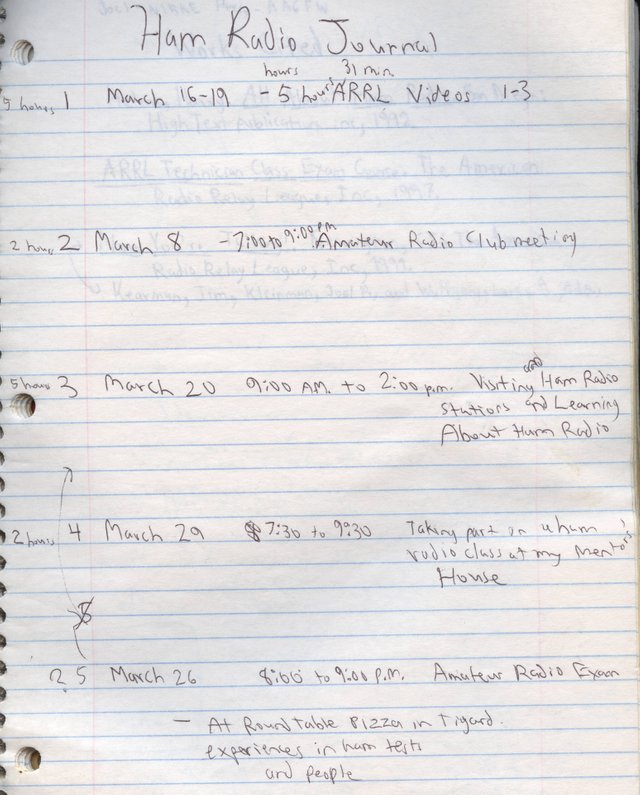 Ham Radio Journal
hours 31 min
5 hours 1 March 16-19 - 5 hours ARRL Videos 1-3
2 hours 2 March 8 - 7:00 to 9:00 pm Amateur Radio Club meeting
5 hours 3 March 20 9:00 A.M. to 2:00 p.m. Visiting Ham Radio
stations and Learning
About Ham Radio
2 hours 4 March 29 7:30 to 9:30 Taking part in a ham
radio class at my Mentor's
House
2 5 March 26 8:00 to 9:00 P.M. Amateur Radio Exam
- At Round table Pizza in Tigard.
experiences in ham tests
and people